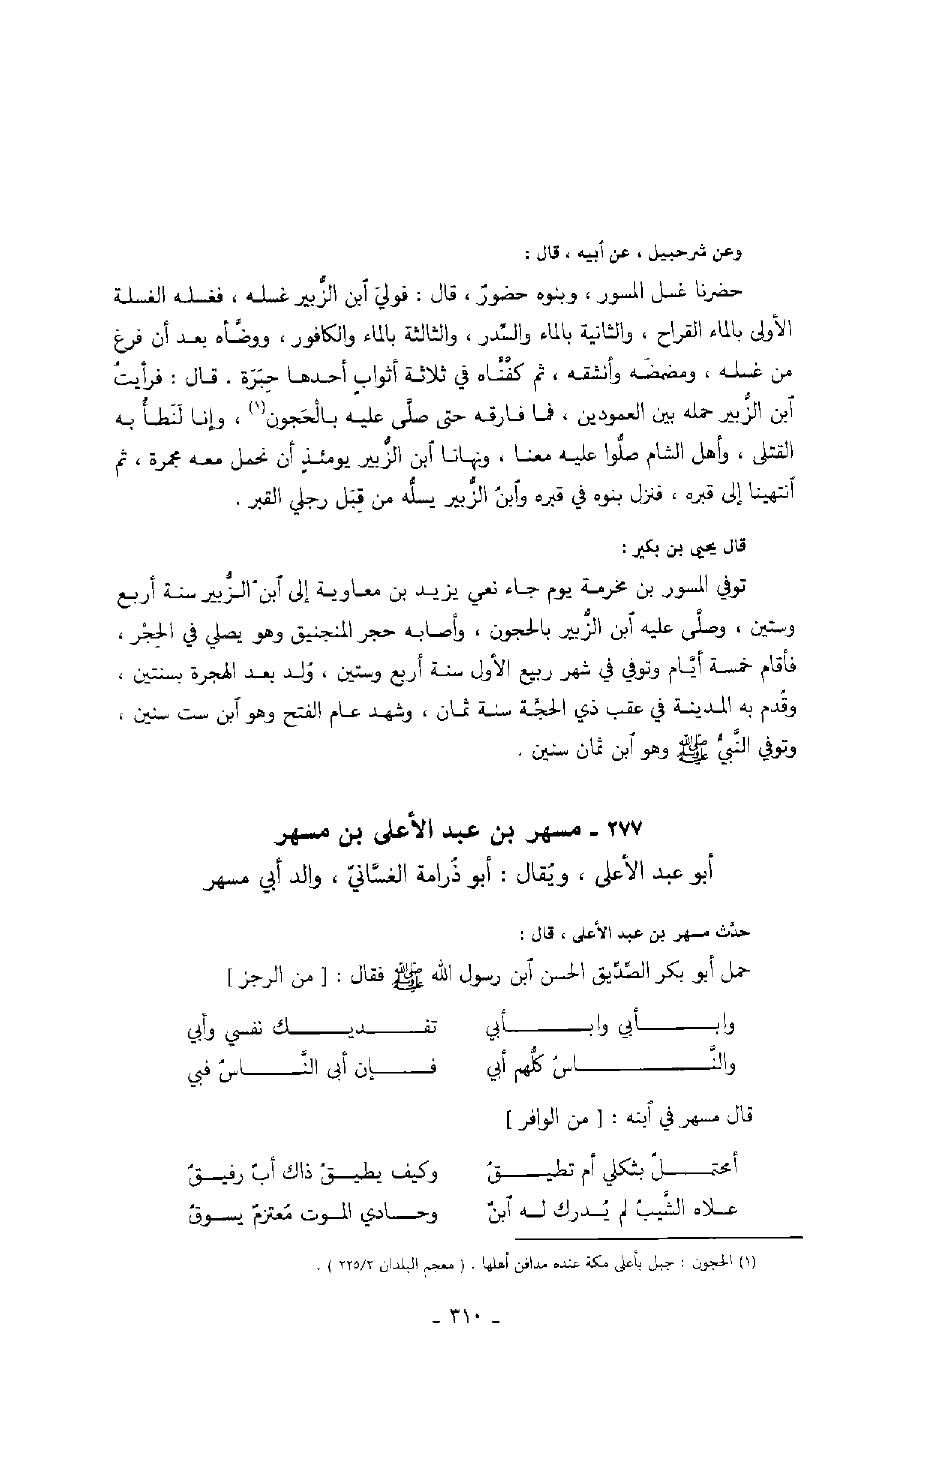 وعن شرحبيل ، عن أبيه ، قال :
حضرنا غسل المسور ، وبنوه حضورٌ ، قال : فولي ٱبن الزُّبير غسله ، فغسله الغسلة
الأولى بالماء القراح ، والثانية بالماء والسِّدر ، والثالثة بالماء والكافور ، ووضَّأه بعد أن فرغ
من غسله ، ومضمضه وأنشقه ، ثم كفنَّاه في ثلاثة أثوابٍ أحدها حِبَرَة . قال : فرأيتُ
ٱبن الزُّبير حمله بين العمودين ، فما فارقه حتى صلَّى عليه بالْحَجون(١) ، وإنا لَنَطأُ به
القتلى ، وأهل الشام صلُّوا عليه معنا ، ونهانا ٱبن الزُّبير يومئذٍ أن نحمل معه مجمرة ، ثم
ٱنتهينا إلى قبره ، فنزل بنوه في قبره وٱبنُ الزُّبير يسلُّه من قِبَل رجلي القبر .
قال يحيى بن بكير :
توفي المسور بن مخرمة يوم جاء نعي يزيد بن معاوية إلى ٱبن الزُّبير سنة أربع
وستين ، وصلَّى عليه ٱبن الزُّبير بالحجون ، وأصابه حجر المنجنيق وهو يصلي في الحِجْر ،
فأقام خمسة أيَّام وتوفي في شهر ربيع الأول سنة أربع وستين ، وُلد بعد الهجرة بسنتين ،
وقُدم به المدينة في عقب ذي الحجَّة سنة ثمان ، وشهد عام الفتح وهو ٱبن ست سنين ،
وتوفي النَّبيُّ ﷺ وهو ٱبن ثمان سنين .
٢٧٧ ـ مسهر بن عبد الأعلى بن مسهر
أبو عبد الأعلى ، ويُقال : أبو ذُرامة الغسَّانيّ ، والد أبي مسهر
حدَّث مسهر بن عبد الأعلى ، قال :
حمل أبو بكر الصِّدِّيق الحسن ٱبن رسول الله ﷺ فقال : [ من الرجز ]
وابـــأبي وابـــأبي تفـــديـــك نفسي وأبي
والنَّـــاسُ كلُّهم أبي فـــإن أبى النَّـــاسُ فبي
قال مسهر في ٱبنه : [ من الوافر ]
أمحتـــلٌ بثكلي أم تطيـــقُ وكيف يطيـقُ ذاك أبٌ رفيـقُ
علاه الشَّيبُ لم يُدرك له ٱبنٌ وحادي الموت مُعتزمٌ يسوقُ
(١) الحجون : جبل بأعلى مكة عنده مدافن أهلها . ( معجم البلدان ٢٢٥/٢ ) .
ـ ٣١٠ ـ